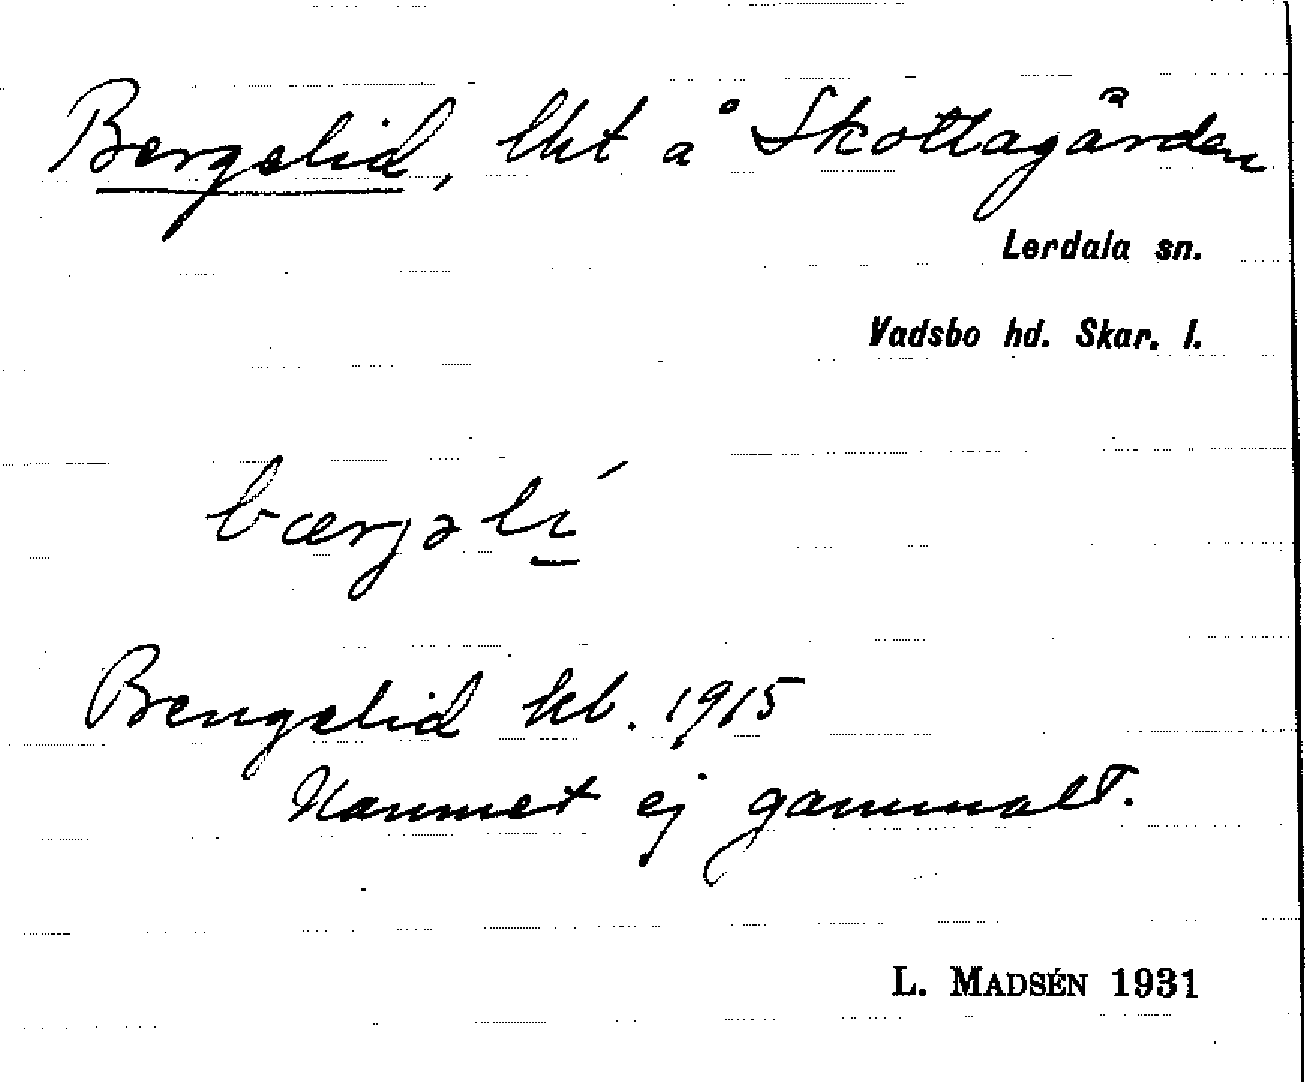 Bergslid, lht å Skottagården
Lerdala sn.
Vadsbo hd. Skar. l.
bærjsli
Bengslid kb. 1915
Namnet ej gammalt.
L. MADSÉN 1931